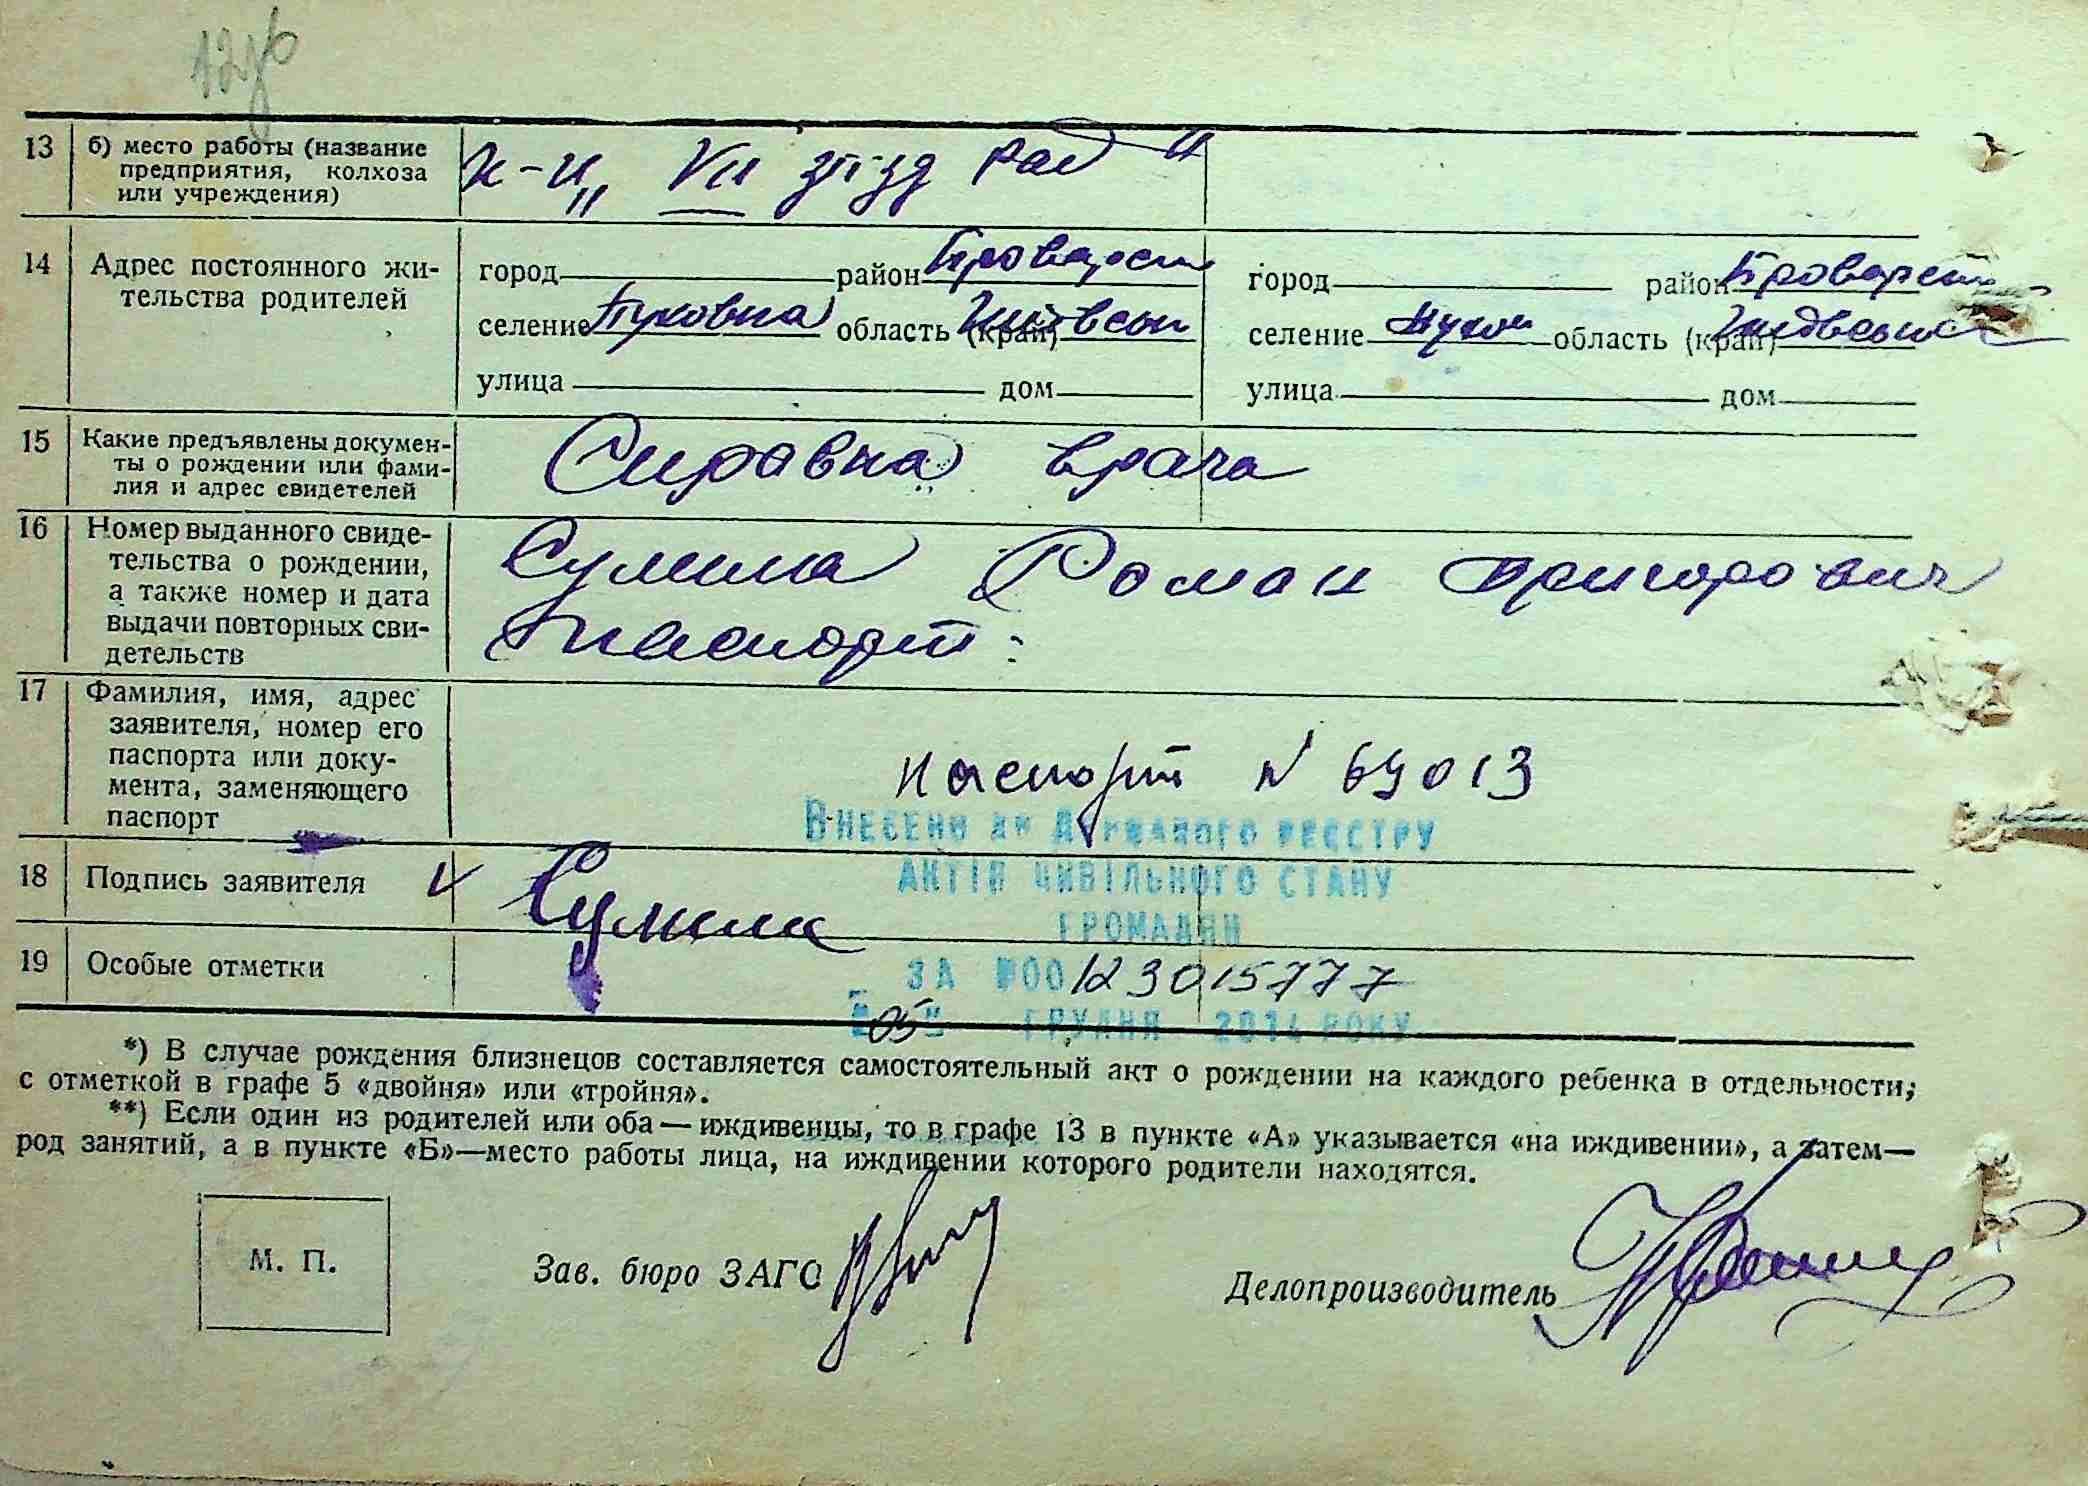 13 б) место работы (название
предприятия, колхоза
или учреждения)
к-п „VII зїзд рад"
14 Адрес постоянного жи-
тельства родителей
город район Броварськ город район Броварськ
селение область (край) селение область (край)
улица дом улица дом
15 Какие предъявлены докумен-
ты о рождении или фами-
лия и адрес свидетелей
Справка врача
16 Номер выданного свиде-
тельства о рождении,
а также номер и дата
выдачи повторных сви-
детельств
Сулима Роман Григорович
Паспорт:
17 Фамилия, имя, адрес
заявителя, номер его
паспорта или доку-
мента, заменяющего
паспорт
паспорт N 69013
ВНЕСЕНО ДО ДЕРЖАВНОГО РЕЄСТРУ
АКТІВ ЦИВІЛЬНОГО СТАНУ
ГРОМАДЯН
18 Подпись заявителя Сулима
19 Особые отметки
ЗА №00123015777
"05" ГРУДНЯ 2014 РОКУ
*) В случае рождения близнецов составляется самостоятельный акт о рождении на каждого ребенка в отдельности;
с отметкой в графе 5 «двойня» или «тройня».
**) Если один из родителей или оба — иждивенцы, то в графе 13 в пункте «А» указывается «на иждивении», а затем—
род занятий, а в пункте «Б»—место работы лица, на иждивении которого родители находятся.
М. П.
Зав. бюро ЗАГС
Делопроизводитель